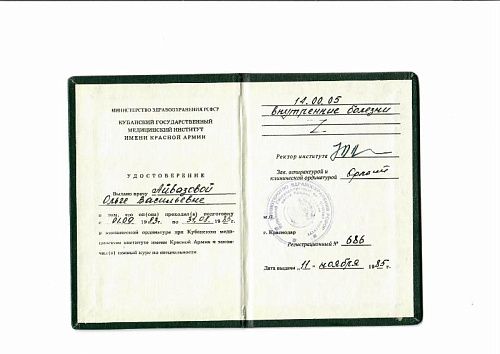 МИНИСТЕРСТВО ЗДРАВООХРАНЕНИЯ РСФСР
КУБАНСКИЙ ГОСУДАРСТВЕННЫЙ
МЕДИЦИНСКИЙ ИНСТИТУТ
ИМЕНИ КРАСНОЙ АРМИИ
УДОСТОВЕРЕНИЕ
Выдано врачу Айвазовой
Ольге Васильевне
в том, что он(она) проходил(а) подготовку
с 01.09 1983г. по 31.08 1985г.
в клинической ординатуре при Кубанском меди-
цинском институте имени Красной Армии и закон-
чил(а) полный курс по специальности
14.00.05
внутренние болезни
Ректор института
Зав. аспирантурой и
клинической ординатурой
М.П.
г. Краснодар
Регистрационный № 686
Дата выдачи „11“ ноября 1985г.